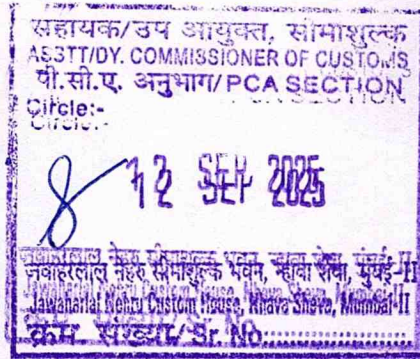 सहायक/उप आयुक्त, सीमाशुल्क
ASSTT/DY. COMMISSIONER OF CUSTOMS
पी.सी.ए. अनुभाग/PCA SECTION
Circle:-
12 SEP 2025
जवाहरलाल नेहरू सीमाशुल्क भवन, न्हावा शेवा, मुंबई-II
Jawaharlal Nehru Custom House, Nhava Sheva, Mumbai-II
क्रम संख्या/Sr. No.